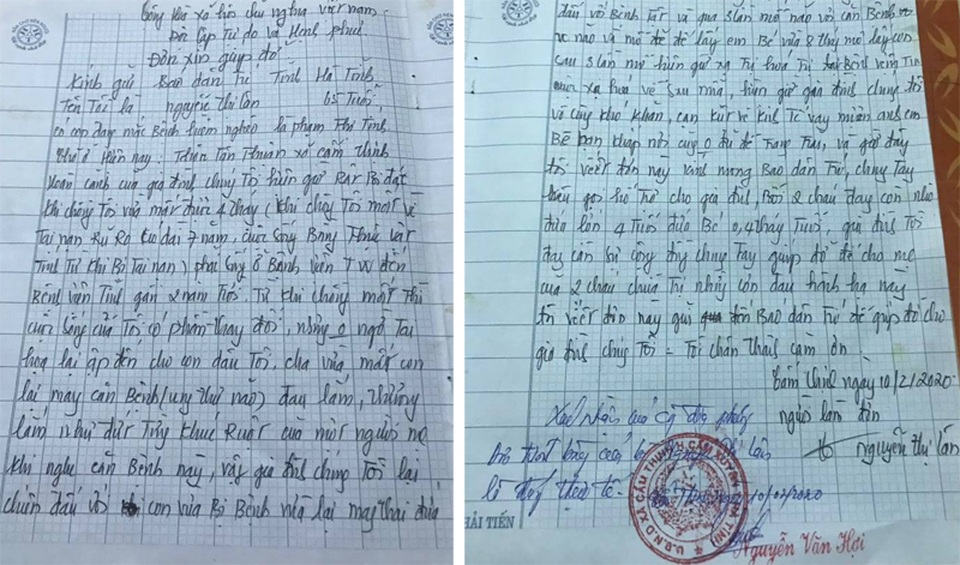 Cộng hòa xã hội chủ nghĩa việt nam
Độc lập Tự do và Hạnh phúc
Đơn xin giúp đỡ
Kính gửi Báo dân trí Tỉnh Hà Tĩnh
Tên Tôi là nguyễn thị lân 65 Tuổi
có con dâu mắc Bệnh hiểm nghèo là phạm Thị Tình
Thôn Tân Thuận xã cẩm Thịnh
Hoàn cảnh của gia đình chúng Tôi hiện giờ Bi đát
khi chồng Tôi vừa mất được 4 tháy (khi chồng Tôi một vụ
Tai nạn Rủi Ro kéo dài 7 năm, cuộc sống Bằng Thực vật
Tính Từ khi Bị Tai nạn) phải sống ở Bệnh viện TW đến
Bệnh viện Tỉnh gần 2 năm Trời. Từ khi chồng mất Thì
cuộc sống của Tôi có phần thay đổi, nhưng o ngờ Tai
họa lại ập đến cho con dâu Tôi, cha vừa mất con
lại mang căn Bệnh (ung thư não) đau lắm, Thương
lắm như đứt Từng khúc Ruột của một người mẹ
khi nghe căn Bệnh này, vậy gia đình chúng Tôi lại
chiến đấu với con vừa Bị Bệnh vừa lại mang thai đứa
đấu với Bệnh Tật và qua 3 lần mổ não với căn Bệnh
não và mổ để lấy em Bé vừa 8 tháy mổ lấy con
sau 3 lần mổ hiện giờ xạ Trị hóa Trị Bệnh viện
xạ hóa về sau nữa, hiện giờ gia đình chúng tôi
vô cùng khó khăn, cạn kiệt về kinh Tế vay mượn anh em
Bè bạn khắp nơi cũng o đủ để Trang Trải, và giờ đây
tôi viết đơn này Mong Báo dân Trí, chung Tay
kêu gọi hỗ trợ cho gia đình, Bởi 2 cháu đang còn nhỏ
đứa lớn 4 Tuổi đứa Bé 0,4 tháy Tuổi, gia đình Tôi
đang cần sự cộng đồng chung Tay giúp đỡ để cho mẹ
của 2 cháu chữa Trị những cơn đau hành hạ này
tôi viết đơn này gửi đến Báo dân Trí để giúp đỡ cho
gia đình chúng Tôi - Tôi chân thành cảm ơn.
Cẩm Thịnh ngày 10/2/2020
Xác nhận của địa phương người làm đơn
nguyễn thị lân
là đúng theo tế
10/02/2020
U.B.N.D XÃ CẨM THỊNH
Nguyễn Văn Hợi
HẢI TIẾN